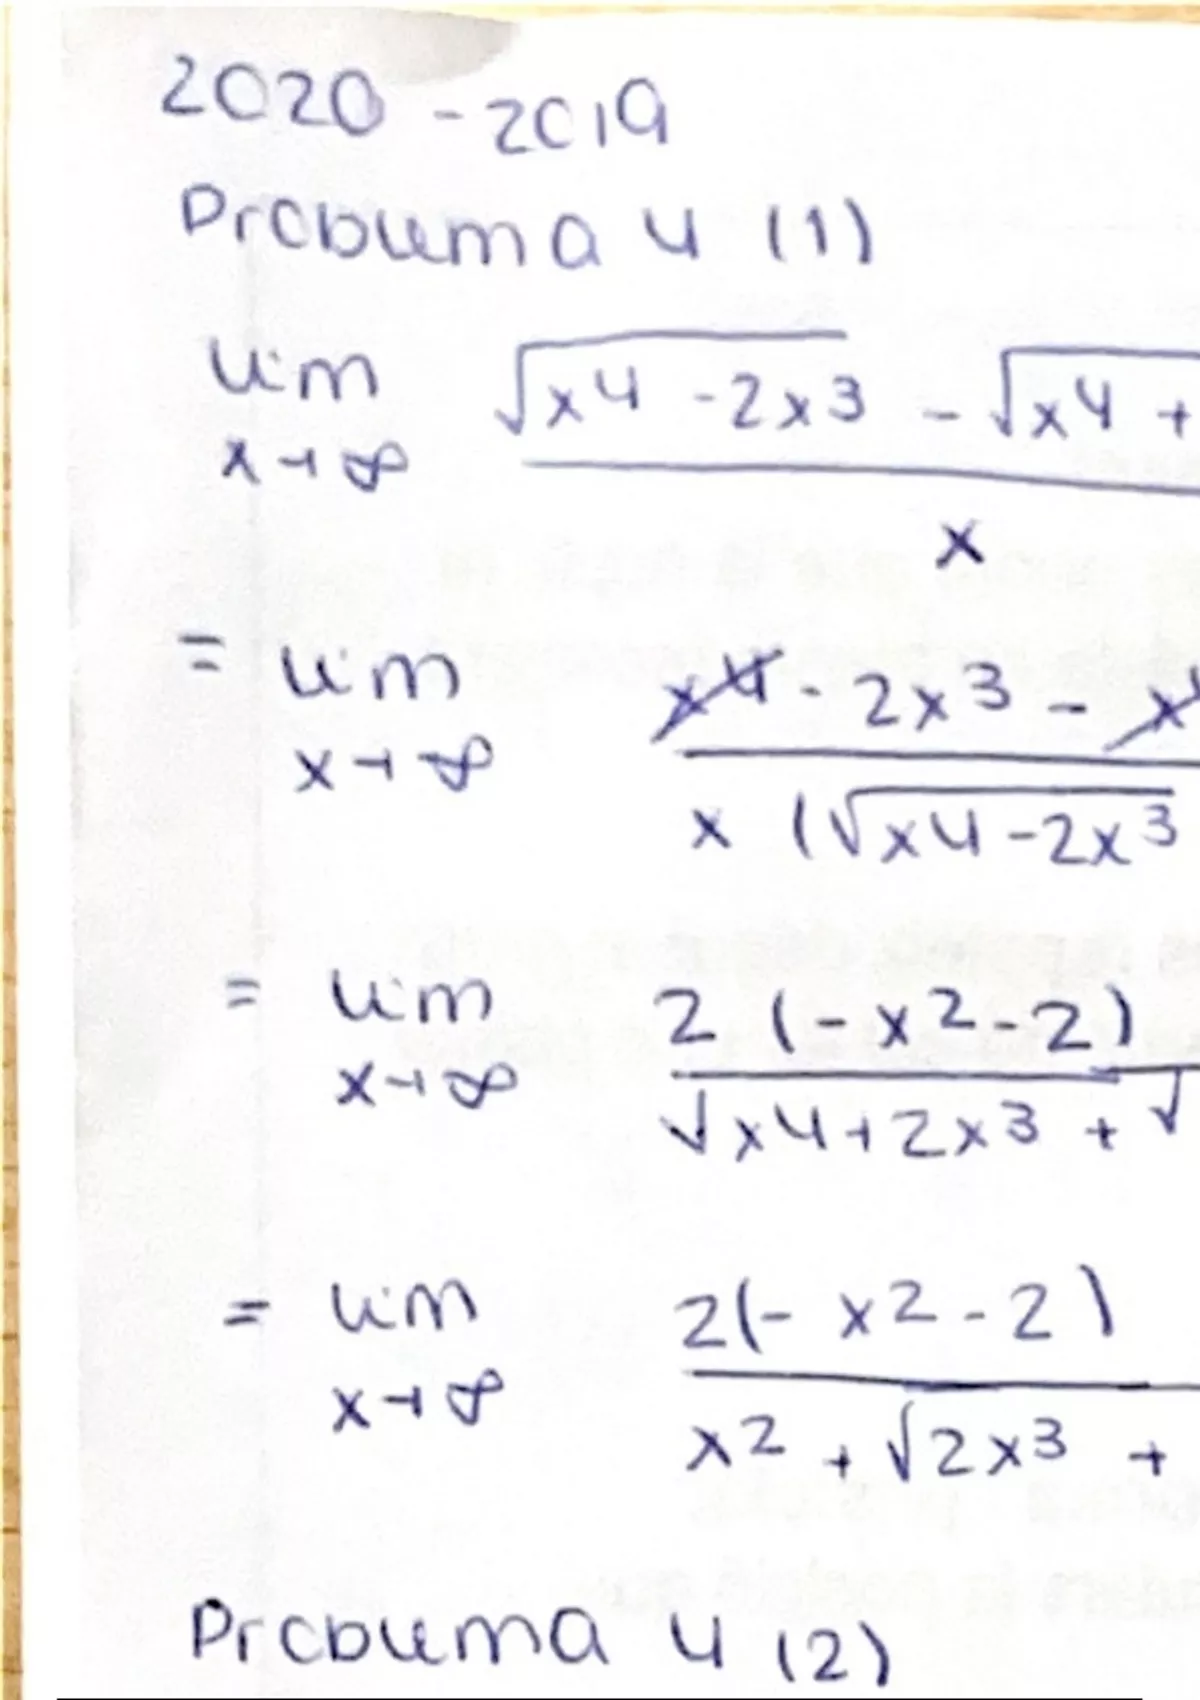 2020 - 2019
Problema 4 (1)
lim √x4 - 2x3 - √x4 +
x→∞ x
= lim x4 - 2x3 - x
x→∞ x (√x4-2x3
= lim 2 (-x2-2)
x→∞ √x4+2x3 + √
= lim 2(- x2-2)
x→∞ x2 + √2x3 +
Problema 4 (2)